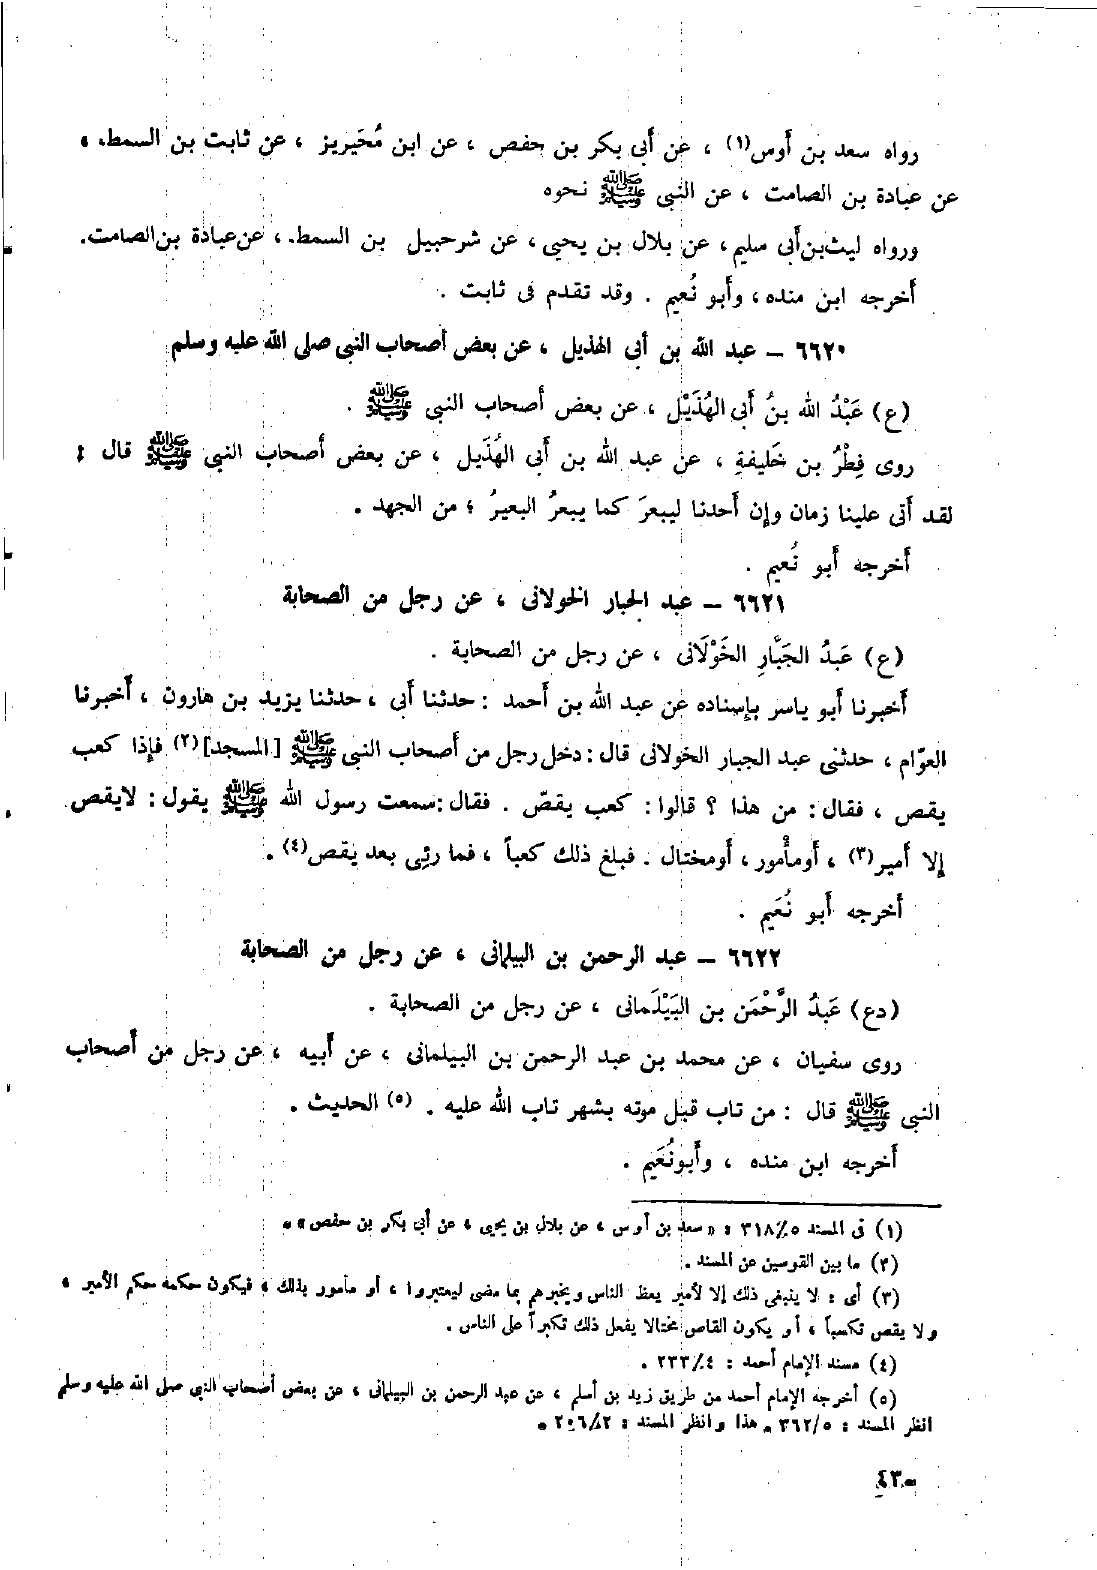 رواه سعد بن أوس(١) ، عن أبى بكر بن حفص ، عن ابن مُحَيريز ، عن ثابت بن السمط ،
عن عبادة بن الصامت ، عن النبى ﷺ نحوه
ورواه ليث بن أبى سليم ، عن بلال بن يحيى ، عن شرحبيل بن السمط ، عن عبادة بن الصامت .
أخرجه ابن منده ، وأبو نُعَيم . وقد تقدم فى ثابت .
٦٦٢٠ – عبد الله بن أبى الهذيل ، عن بعض أصحاب النبى صلى الله عليه وسلم
(ع) عَبْدُ الله بنُ أبى الهُذَيْل ، عن بعض أصحاب النبى ﷺ .
روى فِطْرُ بن خَليفةِ ، عن عبد الله بن أبى الهُذَيل ، عن بعض أصحاب النبى ﷺ قال :
لقد أتى علينا زمان وإن أحدنا ليبعرَ كما يبعرُ البعيرُ ؛ من الجهد .
أخرجه أبو نُعَيم .
٦٦٢١ – عبد الجبار الخولانى ، عن رجل من الصحابة
(ع) عَبدُ الجَبَّارِ الخَوْلَانى ، عن رجل من الصحابة .
أخبرنا أبو ياسر بإسناده عن عبد الله بن أحمد : حدثنا أبى ، حدثنا يزيد بن هارون ، أخبرنا
العوّام ، حدثنى عبد الجبار الخولانى قال : دخل رجل من أصحاب النبى ﷺ [المسجد](٢) فإذا كعب
يقص ، فقال : من هذا ؟ قالوا : كعب يقصّ . فقال : سمعت رسول الله ﷺ يقول : لايقص
إلا أمير(٣) ، أومأمور ، أومختال . فبلغ ذلك كعباً ، فما رئى بعد يقص(٤) .
أخرجه أبو نُعَيم .
٦٦٢٢ – عبد الرحمن بن البيلمانى ، عن رجل من الصحابة
(دع) عَبَدُ الرَّحْمَن بن البَيْلَمانى ، عن رجل من الصحابة .
روى سفيان ، عن محمد بن عبد الرحمن بن البيلمانى ، عن أبيه ، عن رجل من أصحاب
النبى ﷺ قال : من تاب قبل موته بشهر تاب الله عليه . (٥) الحديث .
أخرجه ابن منده ، وأبونُعَيم .
(١) فى المسند ٣١٨/٥ : « سعد بن أوس ، عن بلال بن يحيى ، عن أبى بكر بن حفص » .
(٢) ما بين القوسين عن المسند .
(٣) أى : لا ينبغى ذلك إلا لأمير يعظ الناس ويخبرهم بما مضى ليعتبروا ، أو مأمور بذلك ، فيكون حكمه حكم الأمير ،
ولا يقص تكسباً ، أو يكون القاص مختالا يفعل ذلك تكبراً على الناس .
(٤) مسند الإمام أحمد : ٢٣٣/٤ .
(٥) أخرجه الإمام أحمد من طريق زيد بن أسلم ، عن عبد الرحمن بن البيلمانى ، عن بعض أصحاب النبى صلى الله عليه وسلم
انظر المسند : ٣٦٢/٥ . هذا وانظر المسند : ٢٠٦/٢ .
٤٣٠